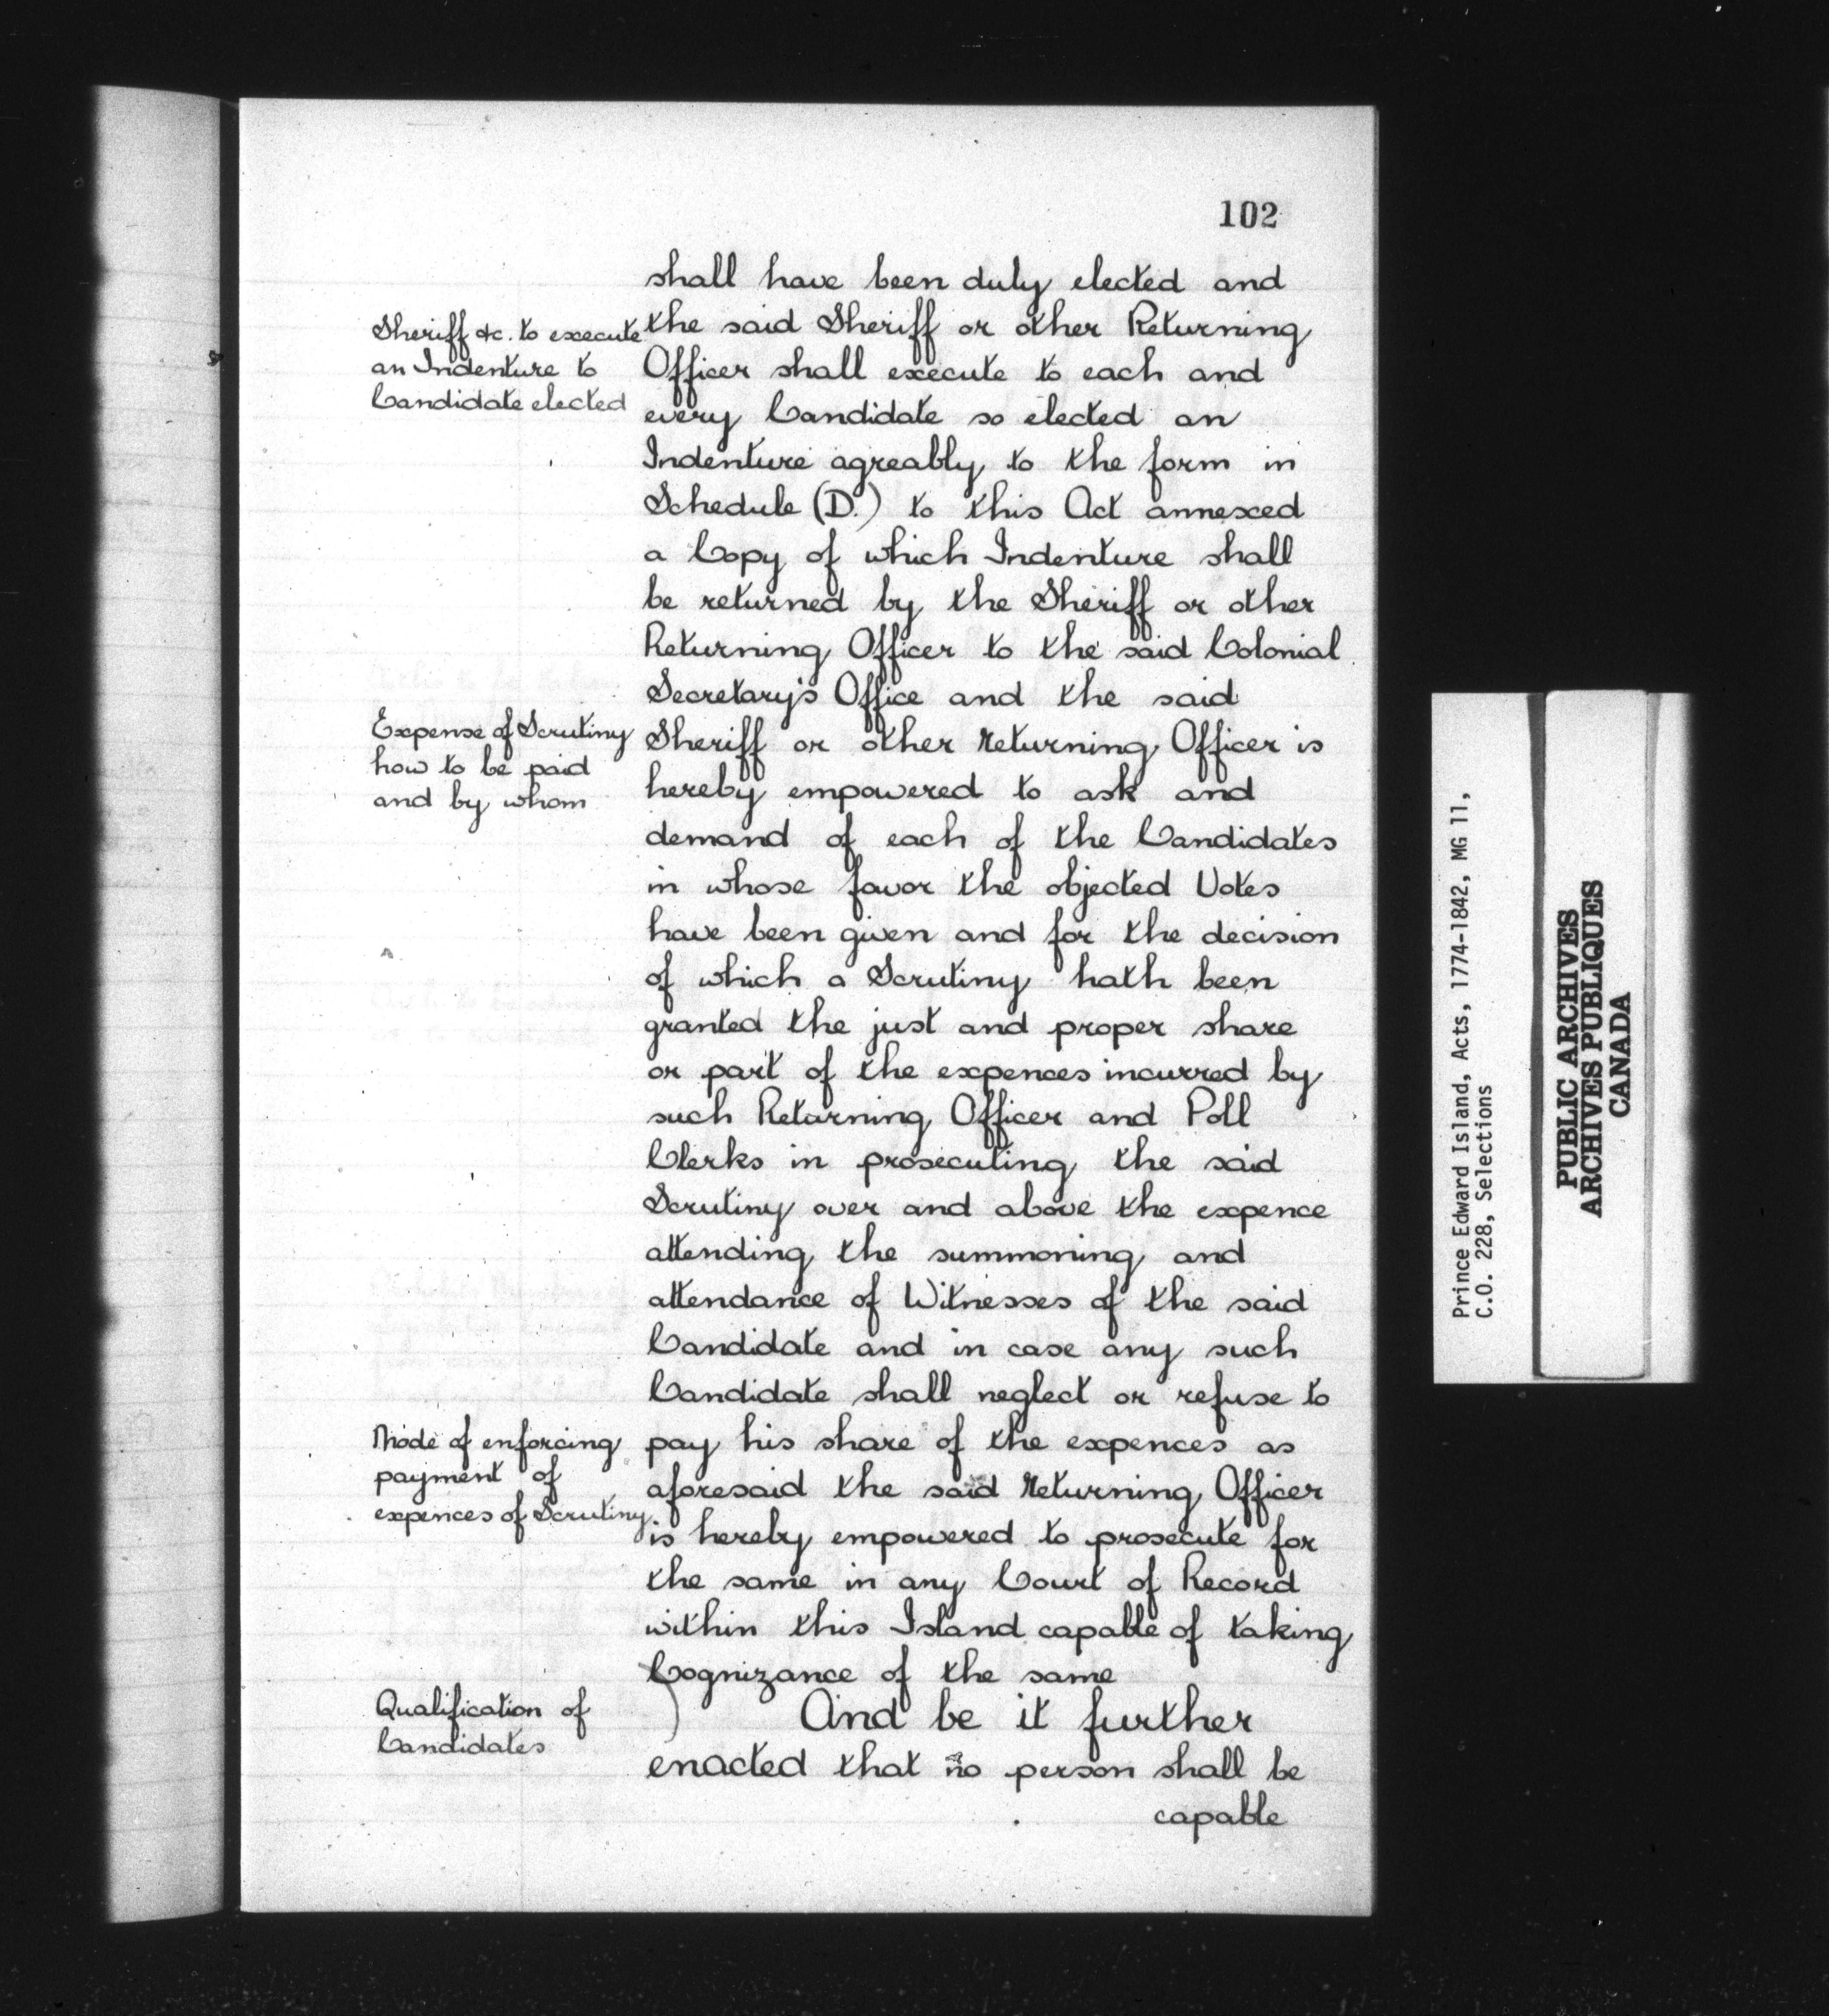 102
shall have been duly elected and
Sheriff &c. to execute
an Indenture to
Candidate elected
the said Sheriff or other Returning
Officer shall execute to each and
every Candidate so elected an
Indenture agreably to the form in
Schedule (D.) to this Act annexed
a Copy of which Indenture shall
be returned by the Sheriff or other
Returning Officer to the said Colonial
Secretary's Office and the said
Expense of Scrutiny
how to be paid
and by whom
Sheriff or other Returning Officer is
hereby empowered to ask and
demand of each of the Candidates
in whose favor the objected Votes
have been given and for the decision
of which a Scrutiny hath been
granted the just and proper share
or part of the expences incurred by
such Returning Officer and Poll
Clerks in prosecuting the said
Scrutiny over and above the expence
attending the summoning and
attendance of Witnesses of the said
Candidate and in case any such
Candidate shall neglect or refuse to
Mode of enforcing
payment of
expences of Scrutiny.
pay his share of the expences as
aforesaid the said Returning Officer
is hereby empowered to prosecute for
the same in any Court of Record
within this Island capable of taking
Cognizance of the same
Qualification of
Candidates
) And be it further
enacted that no person shall be
capable
Prince Edward Island, Acts, 1774-1842, MG 11,
C.O. 228, Selections
PUBLIC ARCHIVES
ARCHIVES PUBLIQUES
CANADA